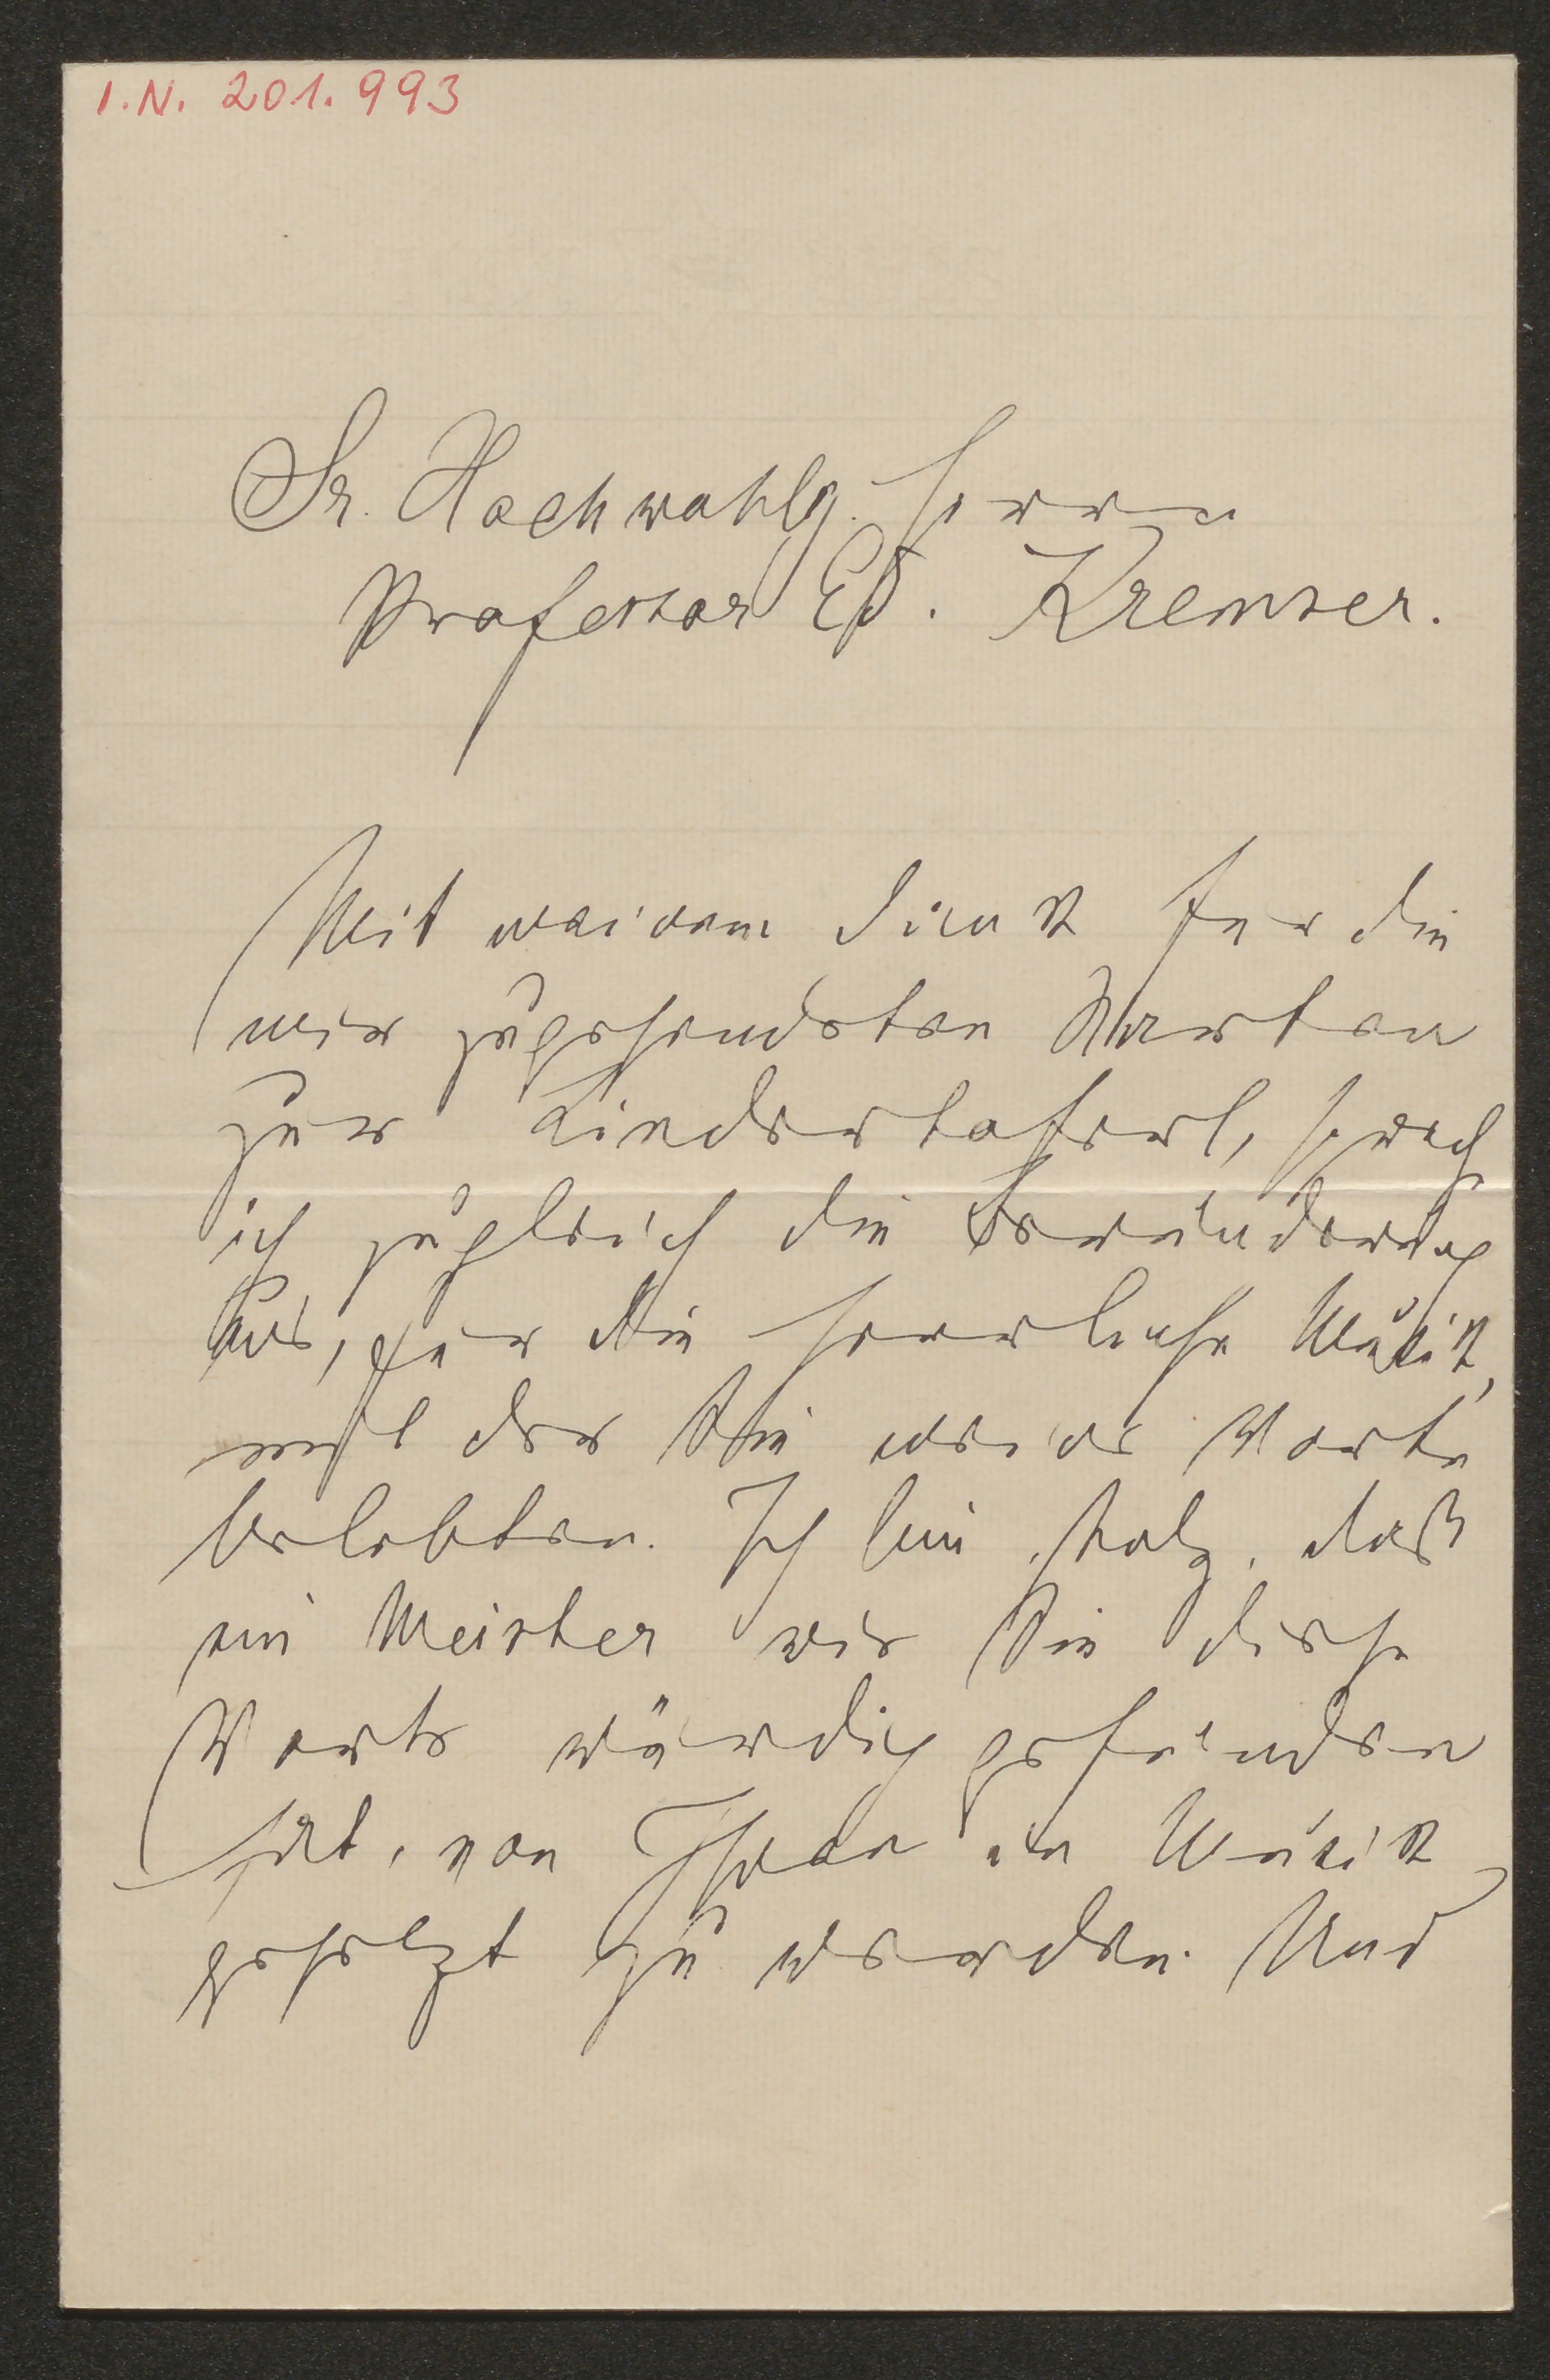 I.N. 201.993
Sr. Hochwohlg. Herrn
Professor Ed. Kremser.
Mit meinem Dank für die
mir zugesendeten Karten
zur Liedertaferl, sprech
ich zugleich die Bewunderung
aus, für die herrliche Musik,
mit der Sie meine Worte
belebten. Ich bin stolz, daß
ein Meister wie Sie diese
Worte würdig gefunden
hat, von Ihnen in Musik
gesetzt zu werden. Und